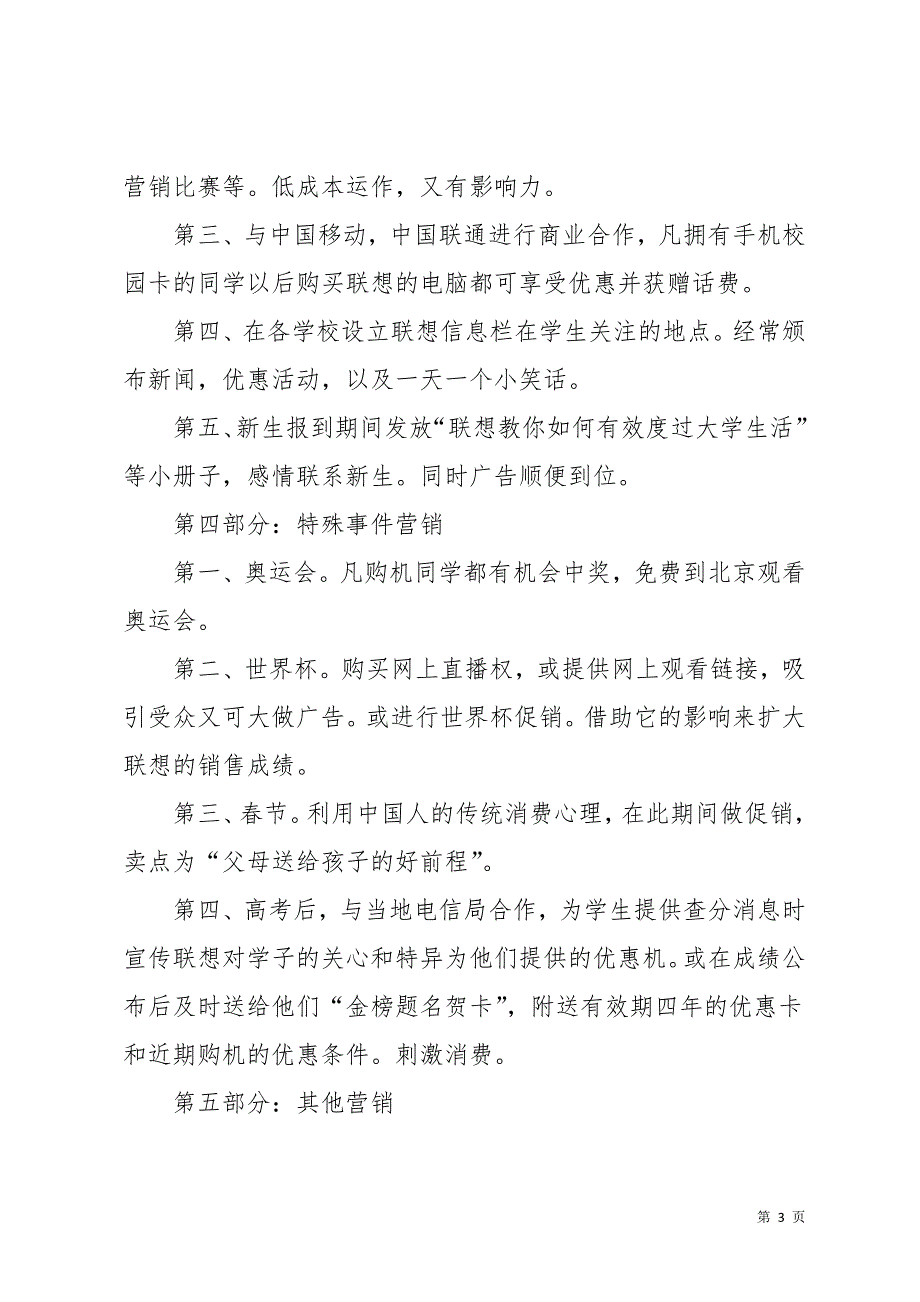 营销比赛等。低成本运作，又有影响力。
第三、与中国移动，中国联通进行商业合作，凡拥有手机校
园卡的同学以后购买联想的电脑都可享受优惠并获赠话费。
第四、在各学校设立联想信息栏在学生关注的地点。经常颁
布新闻，优惠活动，以及一天一个小笑话。
第五、新生报到期间发放“联想教你如何有效度过大学生活”
等小册子，感情联系新生。同时广告顺便到位。
第四部分：特殊事件营销
第一、奥运会。凡购机同学都有机会中奖，免费到北京观看
奥运会。
第二、世界杯。购买网上直播权，或提供网上观看链接，吸
引受众又可大做广告。或进行世界杯促销。借助它的影响来扩大
联想的销售成绩。
第三、春节。利用中国人的传统消费心理，在此期间做促销，
卖点为“父母送给孩子的好前程”。
第四、高考后，与当地电信局合作，为学生提供查分消息时
宣传联想对学子的关心和特异为他们提供的优惠机。或在成绩公
布后及时送给他们“金榜题名贺卡”，附送有效期四年的优惠卡
和近期购机的优惠条件。刺激消费。
第五部分：其他营销
第 3 页